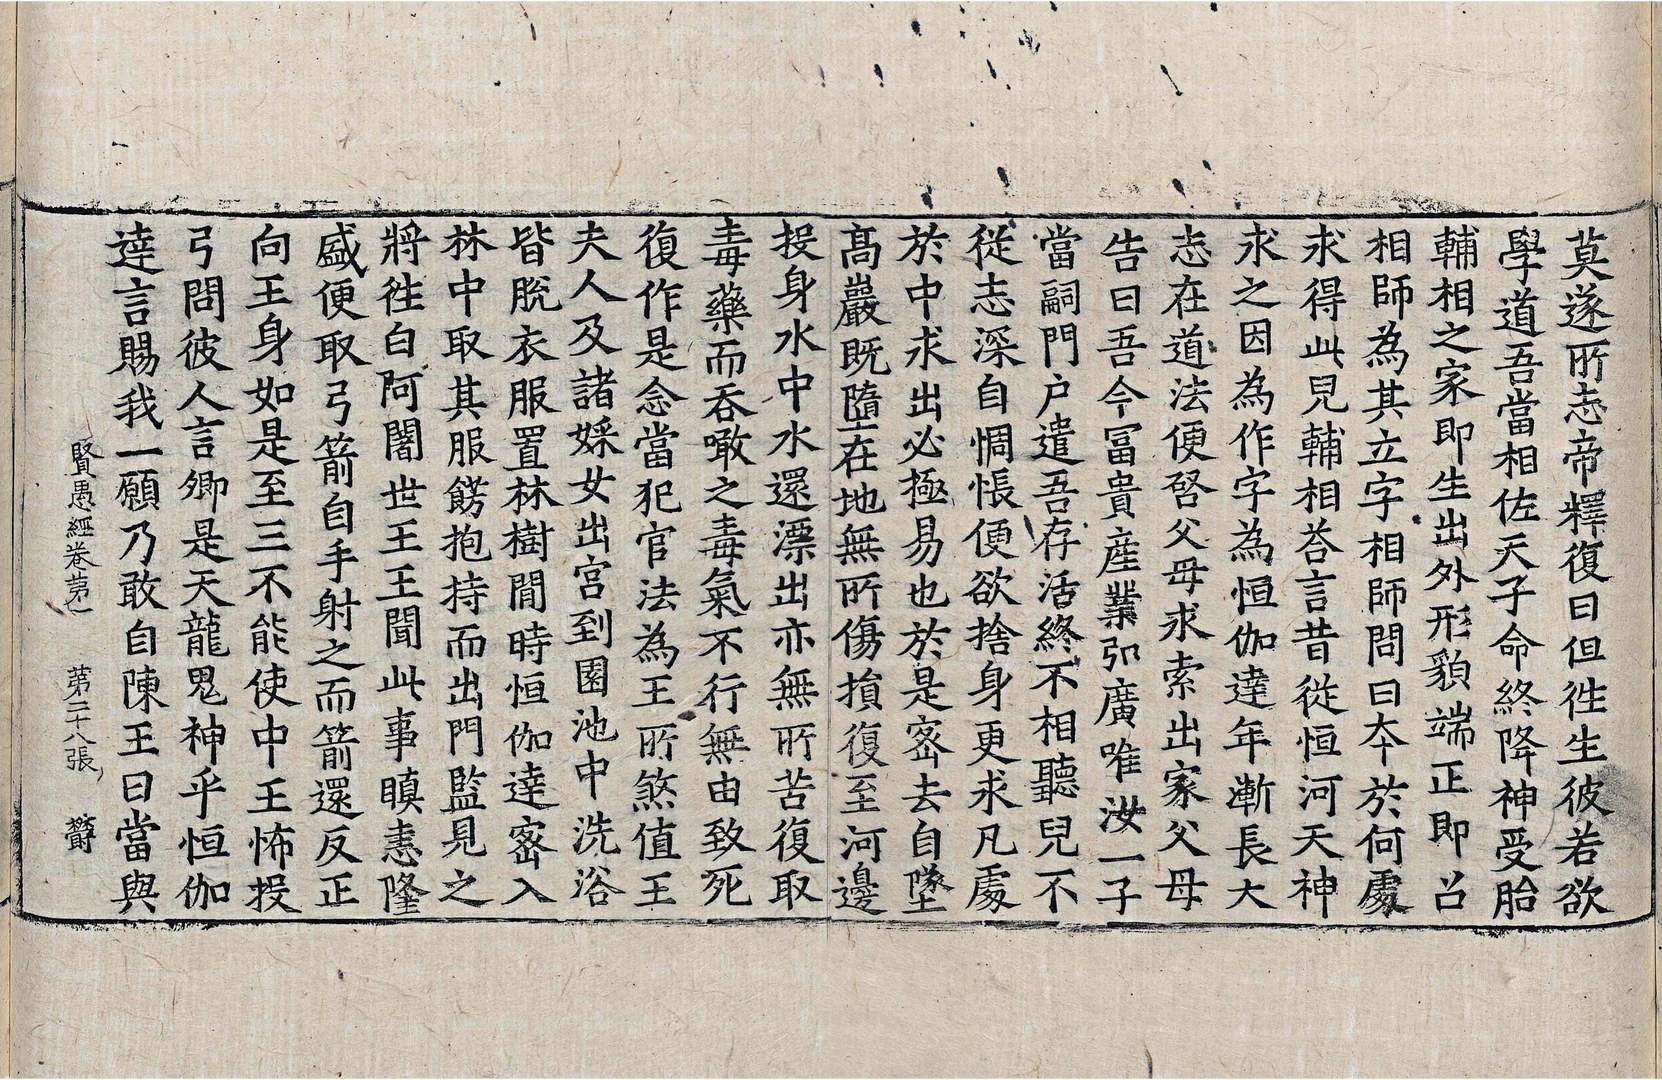 莫遂所志帝釋復曰但徃生彼若欲
學道吾當相佐天子命終降神受胎
輔相之家即生出外形貌端正即召
相師為其立字相師問曰夲於何處
求得此見輔相荅言昔從恒河天神
求之因為作字為恒伽達年漸長大
志在道法便啓父母求索出家父母
告曰吾今冨貴産業弘廣唯汝一子
當嗣門户遣吾存活終不相聽兒不
從志深自惆悵便欲捨身更求凡處
於中求出必極易也於是宻去自墜
髙巖既墮在地無所傷損復至河邊
投身水中水還漂出亦無所苦復取
毒藥而吞噉之毒氣不行無由致死
復作是念當犯官法為王所煞值王
夫人及諸婇女出宫到園池中洗浴
皆脫衣服置林樹間時恒伽達宻入
林中取其服餝抱持而出門監見之
將徃白阿闍世王王聞此事瞋恚隆
盛便取弓箭自手射之而箭還反正
向王身如是至三不能使中王怖投
弓問彼人言卿是天龍鬼神乎恒伽
達言賜我一願乃敢自陳王曰當與
賢愚經卷苐一 第二十八張 欝